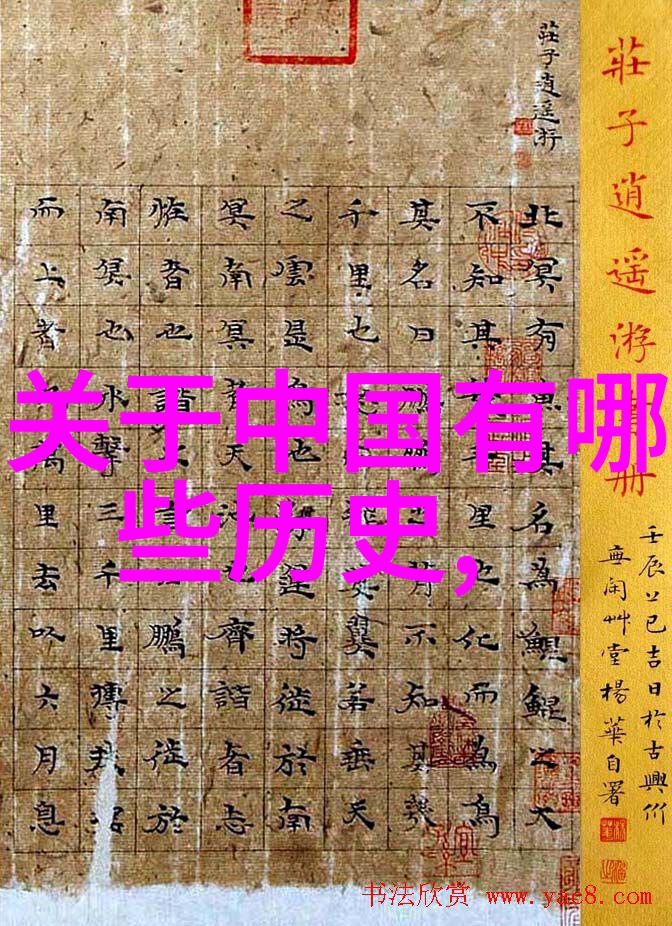 莊子逍遥游
册
壬辰上巳吉日於古興
無闲艸堂楊華自署
莊子逍遥游
北冥有魚其名為鯤鯤之大
不知其里也化而為鳥
其名曰鵬之背不知其幾
千里也飛其翼若垂天
之雲是鳥也海運將徙於南
冥南冥者天池也齊諧者志
怪者也諧之言曰鵬之徙於
南冥也水擊三千里摶扶摇
而上者九萬里去以六月息
关于中国有哪
些历史,
书法欣赏 www.yac8.com